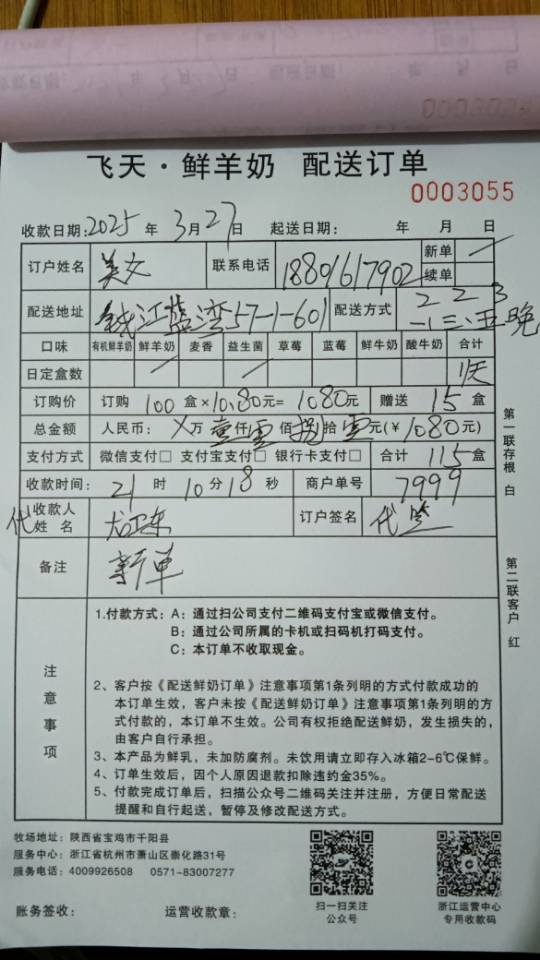 飞天·鲜羊奶 配送订单
0003055
收款日期: 2025 年 3 月 27 日 起送日期: 年 月 日
订户姓名 美女 联系电话 18801617902 新单 续单
配送地址 钱江蓝湾57-1-601 配送方式 2 2 3 一、三、五晚
口味 有机鲜羊奶 鲜羊奶 麦香 益生菌 草莓 蓝莓 鲜牛奶 酸牛奶 合计
日定盒数
订购价 订购 100 盒×10.80元= 1080元 赠送 15 盒
总金额 人民币: X万 壹仟 零佰 捌拾 零元(￥1080元)
支付方式 微信支付□ 支付宝支付□ 银行卡支付□ 合计 115盒
收款时间: 21 时 10 分 18 秒 商户单号 7999
代 收款人姓 名 订户签名 代签
备注 新单
注意事项
1.付款方式: A: 通过扫公司支付二维码支付宝或微信支付。
B: 通过公司所属的卡机或扫码机打码支付。
C: 本订单不收取现金。
2、客户按《配送鲜奶订单》注意事项第1条列明的方式付款成功的
本订单生效，客户未按《配送鲜奶订单》注意事项第1条列明的方
式付款的，本订单不生效。公司有权拒绝配送鲜奶，发生损失的，
由客户自行承担。
3、本产品为鲜乳，未加防腐剂。未饮用请立即存入冰箱2-6℃保鲜。
4、订单生效后，因个人原因退款扣除违约金35%。
5、付款完成订单后，扫描公众号二维码关注并注册，方便日常配送
提醒和自行起送，暂停及修改配送方式。
第一联存根 白
第二联客户 红
牧场地址: 陕西省宝鸡市千阳县
服务中心: 浙江省杭州市萧山区崇化路31号
服务电话: 4009926508 0571-83007277
账务签收: 运营收款章:
扫一扫关注
公众号
浙江运营中心
专用收款码